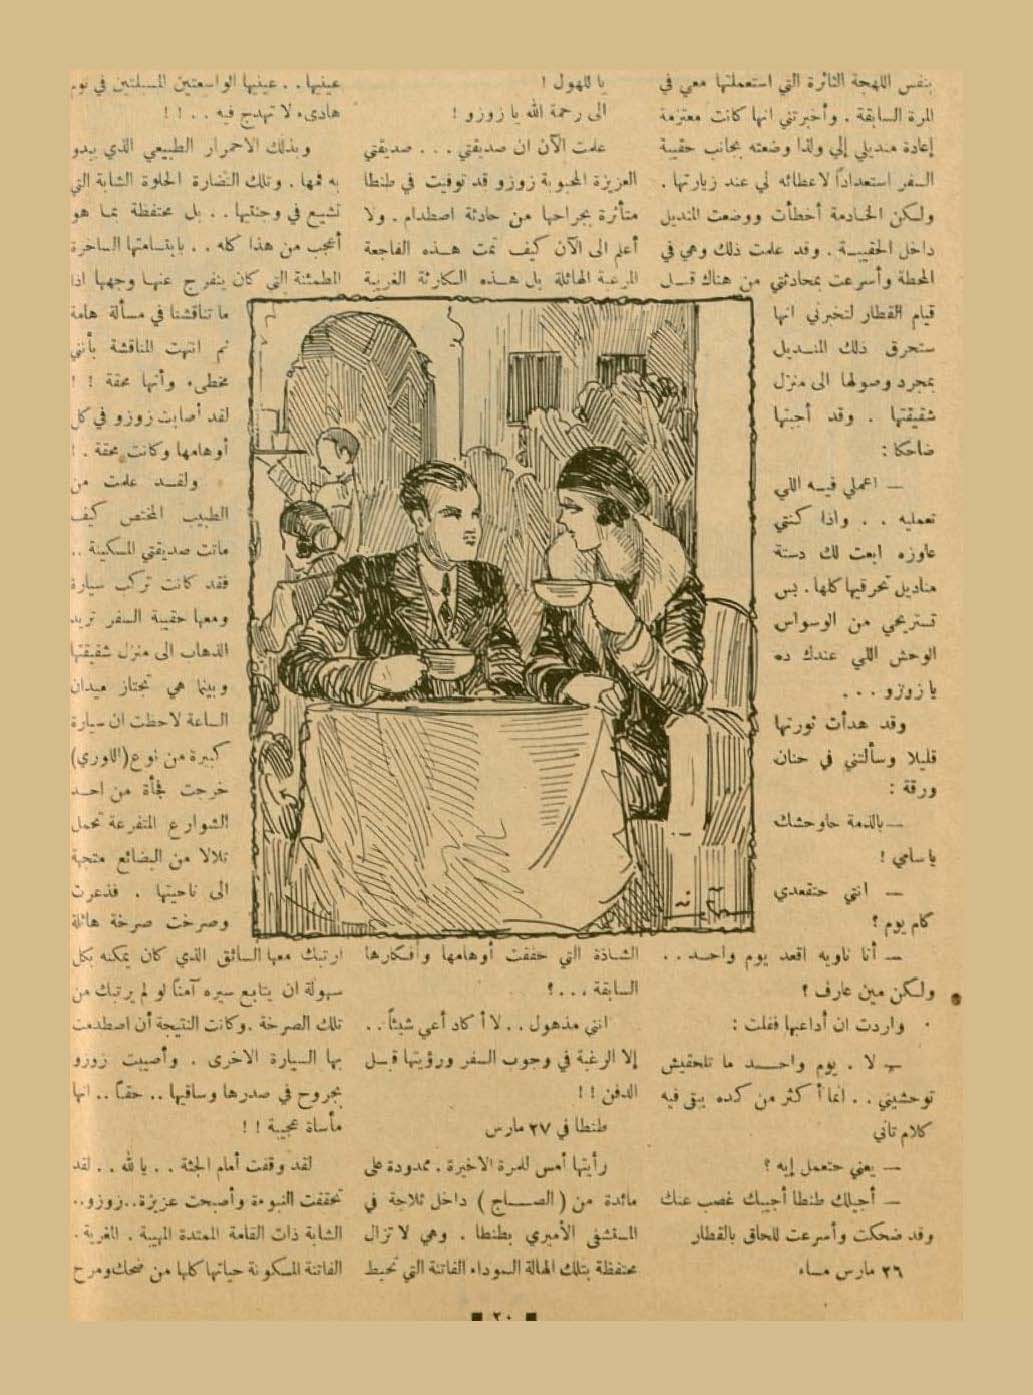 بنفس اللهجة الثائرة التي استعملتها معي في
المرة السابقة . وأخبرتني انها كانت معتزمة
إعادة منديلي إلي ولذا وضعته بجانب حقيبة
السفر استعداداً لاعطائه لي عند زيارتها .
ولكن الخادمة أخطأت ووضعت المنديل
داخل الحقيبة . وقد علمت ذلك وهي في
المحطة وأسرعت بمحادثتي من هناك قبل
قيام القطار لتخبرني انها
ستحرق ذلك المنديل
بمجرد وصولها الى منزل
شقيقتها . وقد أجبتها
ضاحكا :
— اعملي فيه اللي
تعمليه . . واذا كنتي
عاوزه ابعت لك دستة
مناديل تحرقيها كلها . بس
تستريحي من الوسواس
الوحش اللي عندك ده
يا زوزو . . .
وقد هدأت ثورتها
قليلا وسألتني في حنان
ورقة :
— بالذمة حاوحشك
يا سامي !
— انتي حتقعدي
كام يوم ؟
— أنا ناويه اقعد يوم واحد . .
ولكن مين عارف ؟
واردت ان أداعبها فقلت :
— لا . يوم واحد ما تلحقيش
توحشيني . . انما أكثر من كده يبقى فيه
كلام تاني
— يعني حتعمل إيه ؟
— أجيلك طنطا أجيبك غصب عنك
وقد ضحكت وأسرعت للحاق بالقطار
٢٦ مارس مساء
يا للهول !
الى رحمة الله يا زوزو !
علمت الآن ان صديقتي . . . صديقتي
العزيزة المحبوبة زوزو قد توفيت في طنطا
متأثرة بجراحها من حادثة اصطدام . ولا
أعلم الى الآن كيف تمت هذه الفاجعة
المرعبة الهائلة بل هذه الكارثة الغريبة
الشاذة التي حققت أوهامها وأفكارها
السابقة . . . ؟
انني مذهول . . لا أكاد أعي شيئاً . .
إلا الرغبة في وجوب السفر ورؤيتها قبل
الدفن ! !
طنطا في ٢٧ مارس
رأيتها أمس للمرة الاخيرة . ممدودة على
مائدة من ( الصاج ) داخل ثلاجة في
المستشفى الأميري بطنطا . وهي لا تزال
محتفظة بتلك الهالة السوداء الفاتنة التي تحيط
عينيها . . عينيها الواسعتين المسبلتين في نوم
هادىء لا تهدج فيه . . ! !
وبذلك الاحمرار الطبيعي الذي يبدو
به فمها . وتلك النضارة الحلوة الشابة التي
تشيع في وجنتيها . . بل محتفظة بما هو
أعجب من هذا كله . . بابتسامتها الساخرة
المطمئنة التي كان ينفرج عنها وجهها اذا
ما تناقشنا في مسألة هامة
ثم انتهت المناقشة بأنني
مخطىء وأنها محقة ! !
لقد أصابت زوزو في كل
أوهامها وكانت محقة . !
ولقد علمت من
الطبيب المختص كيف
ماتت صديقتي المسكينة . .
فقد كانت تركب سيارة
ومعها حقيبة السفر تريد
الذهاب الى منزل شقيقتها
وبينما هي تجتاز ميدان
الساعة لاحظت ان سيارة
كبيرة من نوع (اللوري)
خرجت فجأة من احد
الشوارع المتفرعة تحمل
تلالا من البضائع متجهة
الى ناحيتها . فذعرت
وصرخت صرخة هائلة
ارتبك معها السائق الذي كان يمكنه بكل
سهولة ان يتابع سيره آمناً لو لم يرتبك من
تلك الصرخة . وكانت النتيجة أن اصطدمت
بها السيارة الاخرى . وأصيبت زوزو
بجروح في صدرها وساقيها . . حقاً . . انها
مأساة عجيبة ! !
لقد وقفت أمام الجثة . . يا لله . . لقد
تحققت النبوءة وأصبحت عزيزة . . زوزو . .
الشابة ذات القامة الممتدة المهيبة . المغرية .
الفاتنة المسكونة حياتها كلها من ضحك ومرح
٢٠